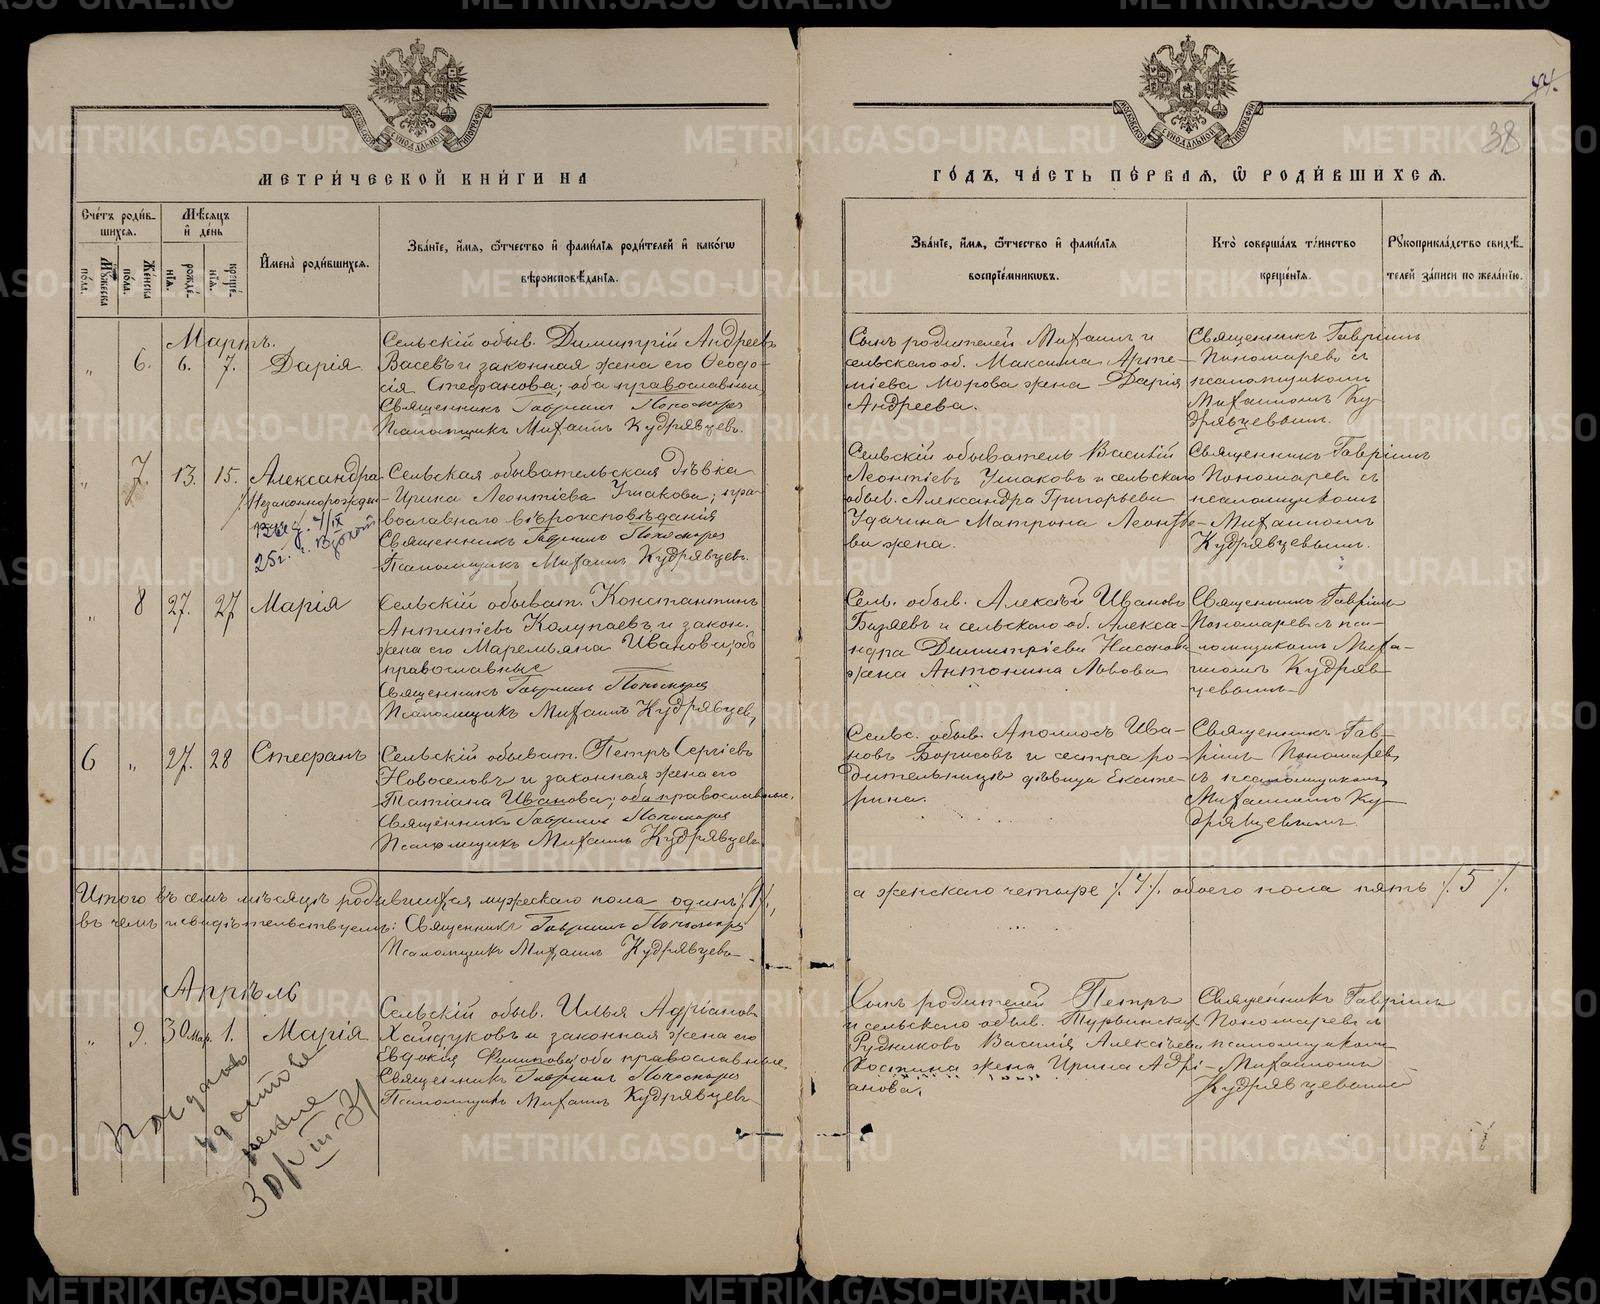 44.
38
МОСКОВСКОЙ СѴНОДАЛЬНОЙ ТИПОГРАФІИ
МОСКОВСКОЙ СѴНОДАЛЬНОЙ ТИПОГРАФІИ
МЕТРИ́ЧЕСКОЙ КНИ́ГИ НА
ГО́ДЪ, ЧА́СТЬ ПЕ́РВАЯ, Ѽ РОДИ́ВШИХСЯ.
Сче́тъ роди́в-
шихся.
Мѣ́сяцъ
и҆ де́нь
Му́жеска по́ла.
Же́нска по́ла.
рожде́-
нія.
креще́-
нія.
И҆мена̀ роди́вшихся.
Зва́ніе, и҆́мя, ѻ҆́тчество и҆ фами́лія роди́телей и҆ како́гѡ
вѣроисповѣ́данія.
Зва́ніе, и҆́мя, ѻ҆́тчество и҆ фами́лія
воспріе́мниковъ.
Кто̀ соверша́лъ та́инство
креще́нія.
Рукоприкла́дство свидѣ́-
телей за́писи по жела́нію.
Мартъ.
„ 6. 6. 7. Дарія
Сельскій обыв. Димитрій Андреевъ
Васевъ и законная жена его Ѳеодо-
сія Стефанова; оба православные,
Священникъ Гавріилъ Пономарев
Псаломщикъ Михаилъ Кудрявцевъ.
Сынъ родителей Михаилъ и
сельскаго об. Максима Арте-
міева Морова жена Дарія
Андреева.
Священникъ Гавріилъ
Пономаревъ съ
псаломщикомъ
Михаиломъ Ку-
дрявцевымъ.
„ 7. 13. 15. Александра
Незаконнорожден
Сельская обывательская дѣвка
Ирина Леонтіева Ушакова; пра-
вославнаго вѣроисповѣданія
Священникъ Гавріилъ Пономарев
Псаломщикъ Михаилъ Кудрявцевъ.
Сельскій обыватель Василій
Леонтіевъ Ушаковъ и сельскаго
обыв. Александра Григорьева
Удачина Матрона Леонтіе-
ва жена.
Священникъ Гавріилъ
Пономаревъ съ
псаломщикомъ
Михаиломъ
Кудрявцевымъ.
„ 8 27. 27 Марія
Сельскій обыват. Константинъ
Антипіевъ Колупаевъ и закон.
жена его Маремьяна Иванова; оба
православные
Священникъ Гавріилъ Пономарев
Псаломщикъ Михаилъ Кудрявцев,
Сель. обыв. Алексѣй Ивановъ
и сельскаго об. Алекса-
ндра Димитріева Насонова
жена Антонина Львова
Священникъ Гавріилъ
Пономаревъ съ пса-
ломщикомъ Миха-
иломъ Кудряв-
цевымъ
6 „ 27. 28 Стефанъ
Сельскій обыват. Петръ Сергіевъ
Новоселовъ и законная жена его
Татіана Иванова; оба православные.
Священникъ Гавріилъ Пономарев
Псаломщикъ Михаилъ Кудрявцевъ
Сельс. обыв. Аполлосъ Ива-
новъ Борисовъ и сестра ро-
дительницы дѣвица Екате-
рина.
Священникъ Гав-
ріилъ Пономаревъ
съ псаломщикомъ
Михаиломъ Ку-
дрявцевымъ.
Итого въ семъ мѣсяцѣ родившихся мужескаго пола одинъ /1/,
а женскаго четыре /4/. обоего пола пять /5/.
въ чемъ и свидѣтельствуемъ: Священникъ Гавріилъ Пономарев
Псаломщикъ Михаилъ Кудрявцевъ
Апрѣль
„ 9. 30 мар. 1. Марія
Сельскій обыв. Илья Адріановъ
Хайдуковъ и законная жена его
Евдокія Филипова; оба православные,
Священникъ Гавріилъ Пономарев
Псаломщикъ Михаилъ Кудрявцевъ
Сынъ родителей Петръ
и сельскаго обыв. Турьинскихъ
Рудниковъ Василія Алексѣева
жена Ирина Адрі-
анова.
Священникъ Гавріилъ
Пономаревъ съ
псаломщикомъ
Михаиломъ
Кудрявцевымъ
METRIKI.GASO-URAL.RU